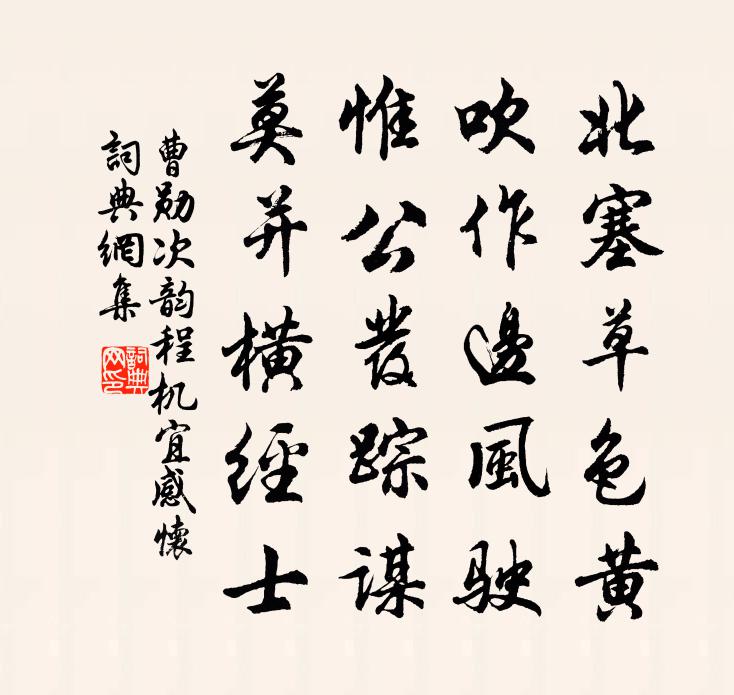 北塞草色黄
吹作邊風駛
惟公發踪謀
莫并橫經士
曹勋次韵程机宜感懷
詞典網集
詞典網印